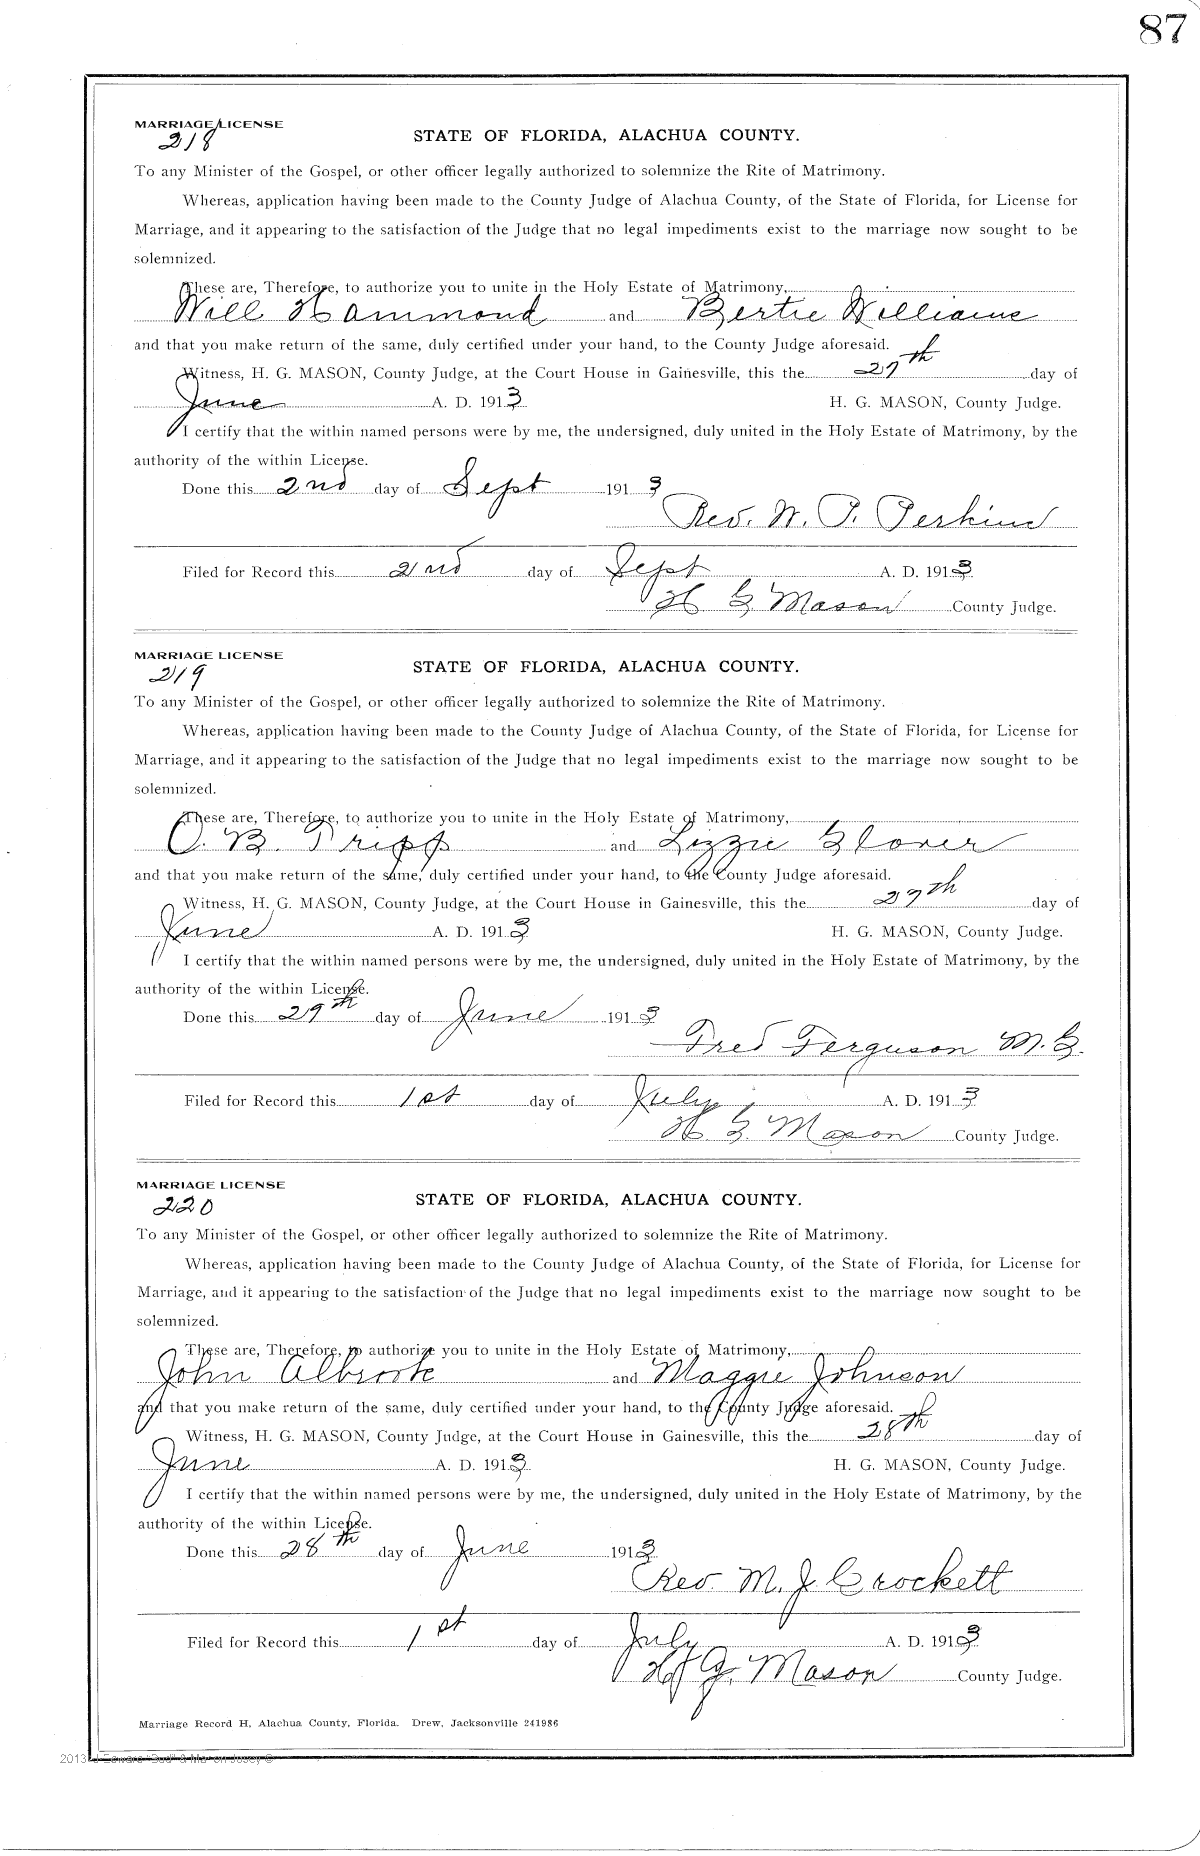 87
MARRIAGE LICENSE
218
STATE OF FLORIDA, ALACHUA COUNTY.
To any Minister of the Gospel, or other officer legally authorized to solemnize the Rite of Matrimony.
Whereas, application having been made to the County Judge of Alachua County, of the State of Florida, for License for
Marriage, and it appearing to the satisfaction of the Judge that no legal impediments exist to the marriage now sought to be
solemnized.
These are, Therefore, to authorize you to unite in the Holy Estate of Matrimony,
Will Hammond and Bertie Williams
and that you make return of the same, duly certified under your hand, to the County Judge aforesaid.
Witness, H. G. MASON, County Judge, at the Court House in Gainesville, this the 27th day of
June A. D. 1913 H. G. MASON, County Judge.
I certify that the within named persons were by me, the undersigned, duly united in the Holy Estate of Matrimony, by the
authority of the within License.
Done this 2nd day of Sept 1913
Rev. W. P. Perkins
Filed for Record this 2nd day of Sept A. D. 1913
H G Mason County Judge.
MARRIAGE LICENSE
219
STATE OF FLORIDA, ALACHUA COUNTY.
To any Minister of the Gospel, or other officer legally authorized to solemnize the Rite of Matrimony.
Whereas, application having been made to the County Judge of Alachua County, of the State of Florida, for License for
Marriage, and it appearing to the satisfaction of the Judge that no legal impediments exist to the marriage now sought to be
solemnized.
These are, Therefore, to authorize you to unite in the Holy Estate of Matrimony,
O. B. Tripp and Lizzie Glover
and that you make return of the same, duly certified under your hand, to the County Judge aforesaid.
Witness, H. G. MASON, County Judge, at the Court House in Gainesville, this the 27th day of
June A. D. 1913 H. G. MASON, County Judge.
I certify that the within named persons were by me, the undersigned, duly united in the Holy Estate of Matrimony, by the
authority of the within License.
Done this 29th day of June 1913
Fred Ferguson M. G.
Filed for Record this 1st day of July A. D. 1913
H. G. Mason County Judge.
MARRIAGE LICENSE
220
STATE OF FLORIDA, ALACHUA COUNTY.
To any Minister of the Gospel, or other officer legally authorized to solemnize the Rite of Matrimony.
Whereas, application having been made to the County Judge of Alachua County, of the State of Florida, for License for
Marriage, and it appearing to the satisfaction of the Judge that no legal impediments exist to the marriage now sought to be
solemnized.
These are, Therefore, to authorize you to unite in the Holy Estate of Matrimony,
John Albrook and Maggie Johnson
and that you make return of the same, duly certified under your hand, to the County Judge aforesaid.
Witness, H. G. MASON, County Judge, at the Court House in Gainesville, this the 28th day of
June A. D. 1913 H. G. MASON, County Judge.
I certify that the within named persons were by me, the undersigned, duly united in the Holy Estate of Matrimony, by the
authority of the within License.
Done this 28th day of June 1913
Rev. M. J. Crockett
Filed for Record this 1st day of July A. D. 1913
H G. Mason County Judge.
Marriage Record H, Alachua County, Florida. Drew, Jacksonville 241986
2013